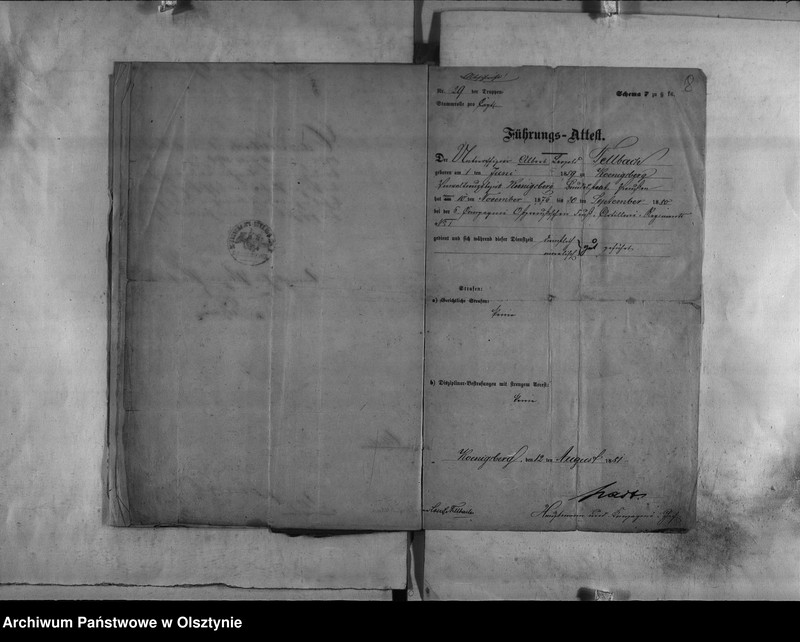 Nr. 29 der Truppen-
Schema F zu § 10.
Stammrolle pro
Führungs-Attest.
Der Unteroffizier Albert Leopold Fellbach
geboren am 1 ten Juni 1859 zu Koenigsberg
Verwaltungsbezirk Koenigsberg Bundesstaat Preußen
hat vom 10 ten November 1876 bis 30 ten September 1880
bei der 5 Compagnie Ostpreußischen Fuß-Artillerie-Regiments
No 1
gedient und sich während dieser Dienstzeit dienstlich
gut geführt.
Strafen:
a) Gerichtliche Strafen:
Keine
b) Disziplinar-Bestrafungen mit strengem Arrest:
Keine
Koenigsberg, den 12 ten August 1881
Hauptmann und Compagnie-Chef
Archiwum Państwowe w Olsztynie